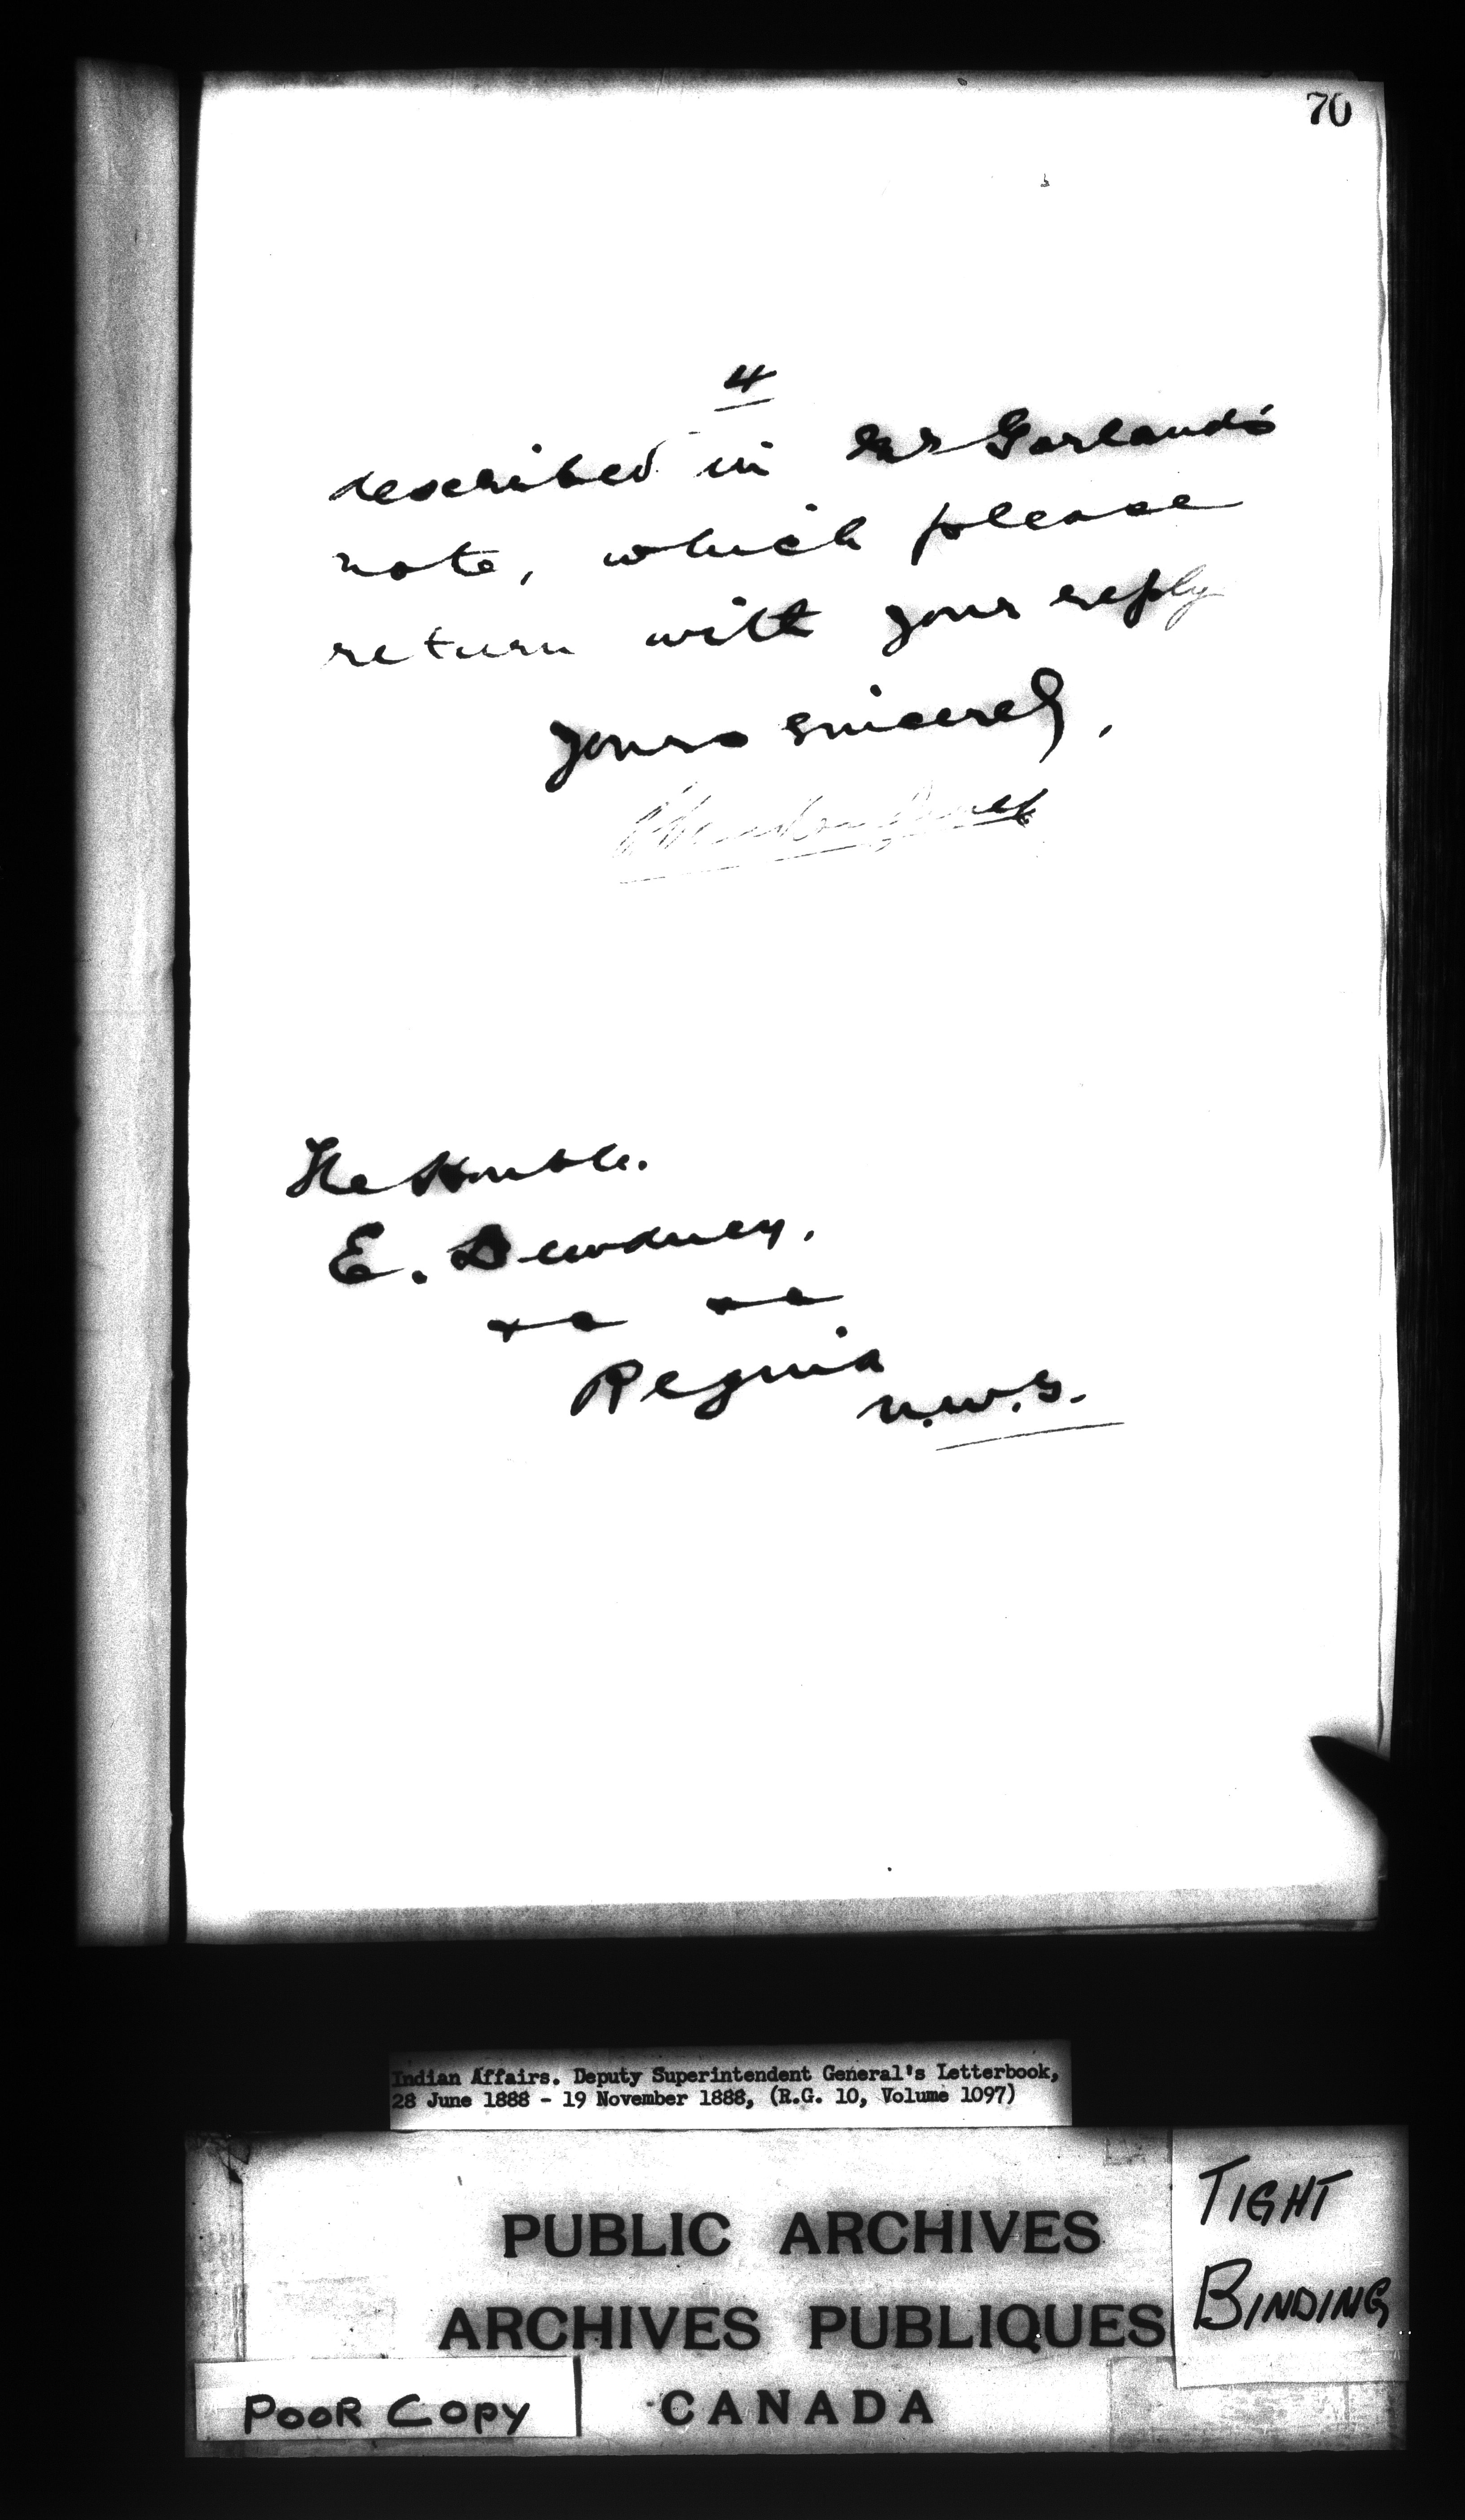 70
4
described in Mr Garland's
note, which please
return with your reply
Yours sincerely,
The Honble.
E. Dewdney,
Regina
N.W.T.
Indian Affairs. Deputy Superintendent General's Letterbook,
28 June 1888 - 19 November 1888, (R.G. 10, Volume 1097)
PUBLIC ARCHIVES
ARCHIVES PUBLIQUES
CANADA
TIGHT
BINDING
POOR COPY